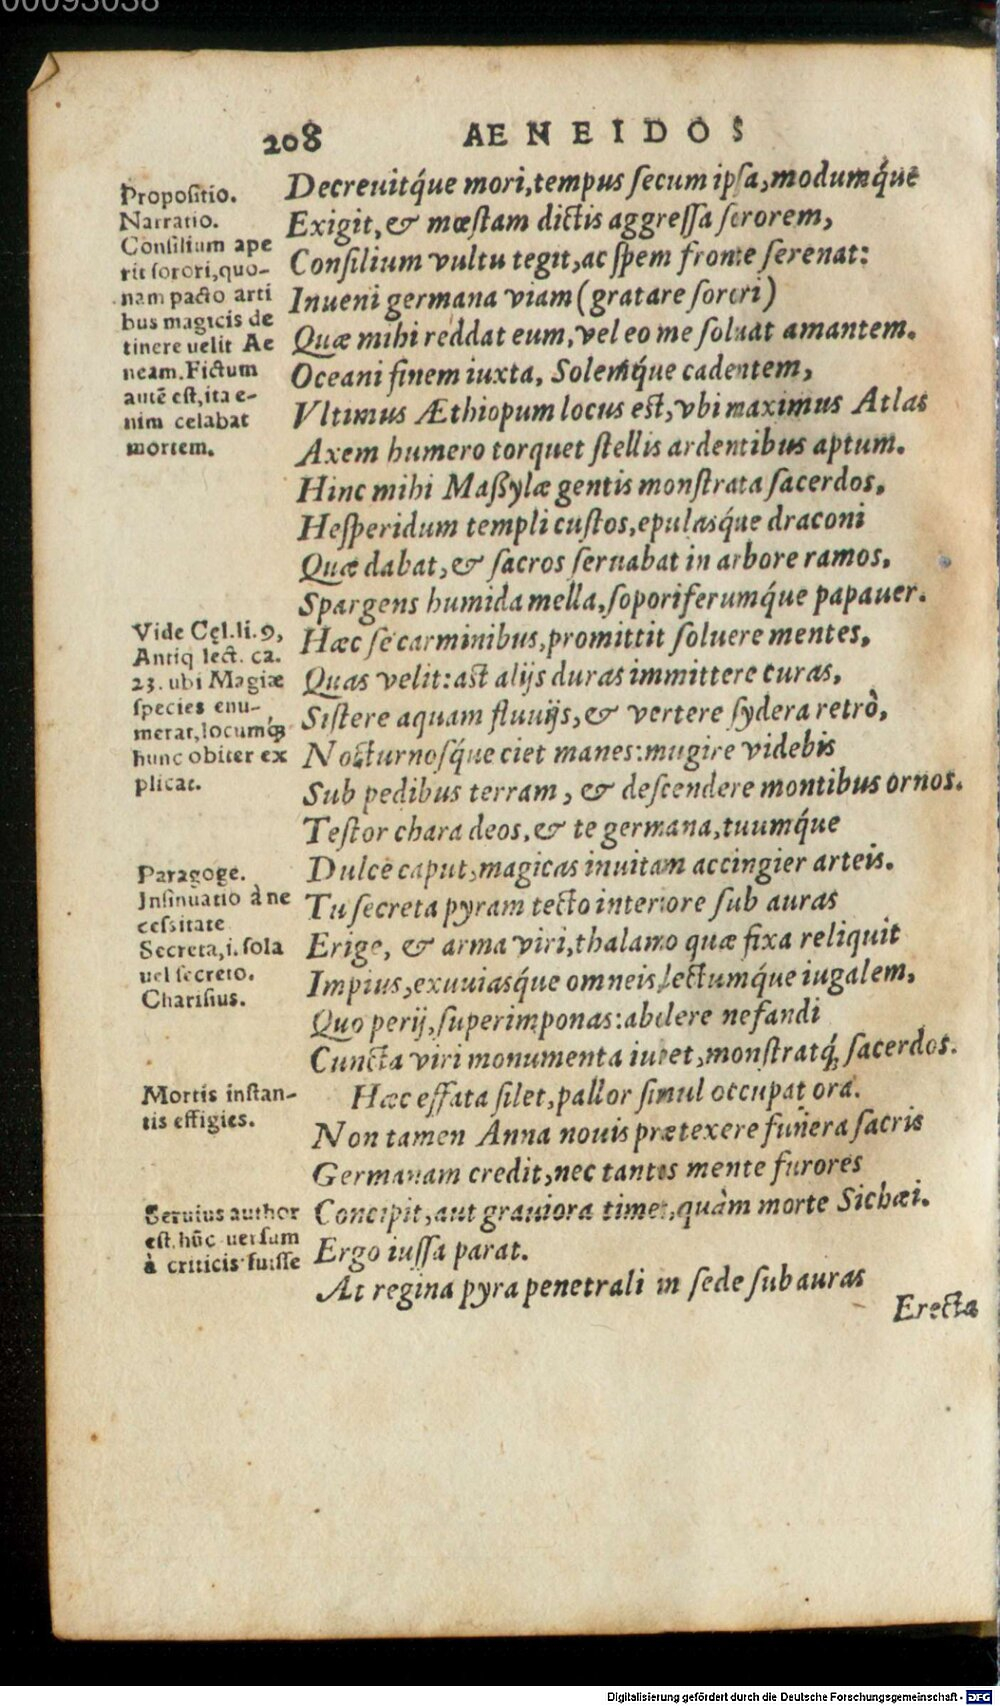 00093038
208 AENEIDOS
Propositio.
Narratio.
Consilium ape
rit sorori, quo-
nam pacto arti
bus magicis de
tinere uelit Ae
neam. Fictum
autē est, ita e-
nim celabat
mortem.
Decreuitq́ue mori, tempus secum ipsa, modumq́ue
Exigit, & mœstam dictis aggressa sororem,
Consilium vultu tegit, ac spem fronte serenat:
Inueni germana viam (gratare sorori)
Quæ mihi reddat eum, vel eo me soluat amantem.
Oceani finem iuxta, Solemq́ue cadentem,
Vltimus Æthiopum locus est, vbi maximus Atlas
Axem humero torquet stellis ardentibus aptum.
Hinc mihi Maßylæ gentis monstrata sacerdos,
Hesperidum templi custos, epulasq́ue draconi
Quæ dabat, & sacros seruabat in arbore ramos,
Spargens humida mella, soporiferumq́ue papauer.
Vide Cęl. li. 9,
Antiq lect. ca.
23. ubi Magiæ
species enu-
merat, locumq́;
hunc obiter ex
plicat.
Hæc se carminibus, promittit soluere mentes,
Quas velit: ast alijs duras immittere curas,
Sistere aquam fluuijs, & vertere sydera retrò,
Nocturnosq́ue ciet manes: mugire videbis
Sub pedibus terram, & descendere montibus ornos.
Testor chara deos, & te germana, tuumq́ue
Paragoge.
Insinuatio à ne
cessitate
Secreta, i. sola
uel secreto.
Charisius.
Dulce caput, magicas inuitam accingier arteis.
Tu secreta pyram tecto interiore sub auras
Erige, & arma viri, thalamo quæ fixa reliquit
Impius, exuuiasq́ue omneis, lectumq́ue iugalem,
Quo perij, superimponas: abolere nefandi
Cuncta viri monumenta iuuet, monstratq́; sacerdos.
Mortis instan-
tis effigies.
Hæc effata silet, pallor simul occupat ora.
Non tamen Anna nouis prætexere funera sacris
Germanam credit, nec tantos mente furores
Seruius author
est, hūc uersum
à criticis fuisse
Concipit, aut grauiora timet, quàm morte Sichæi.
Ergo iussa parat.
At regina pyra penetrali in sede sub auras
Erecta
Digitalisierung gefördert durch die Deutsche Forschungsgemeinschaft - DFG